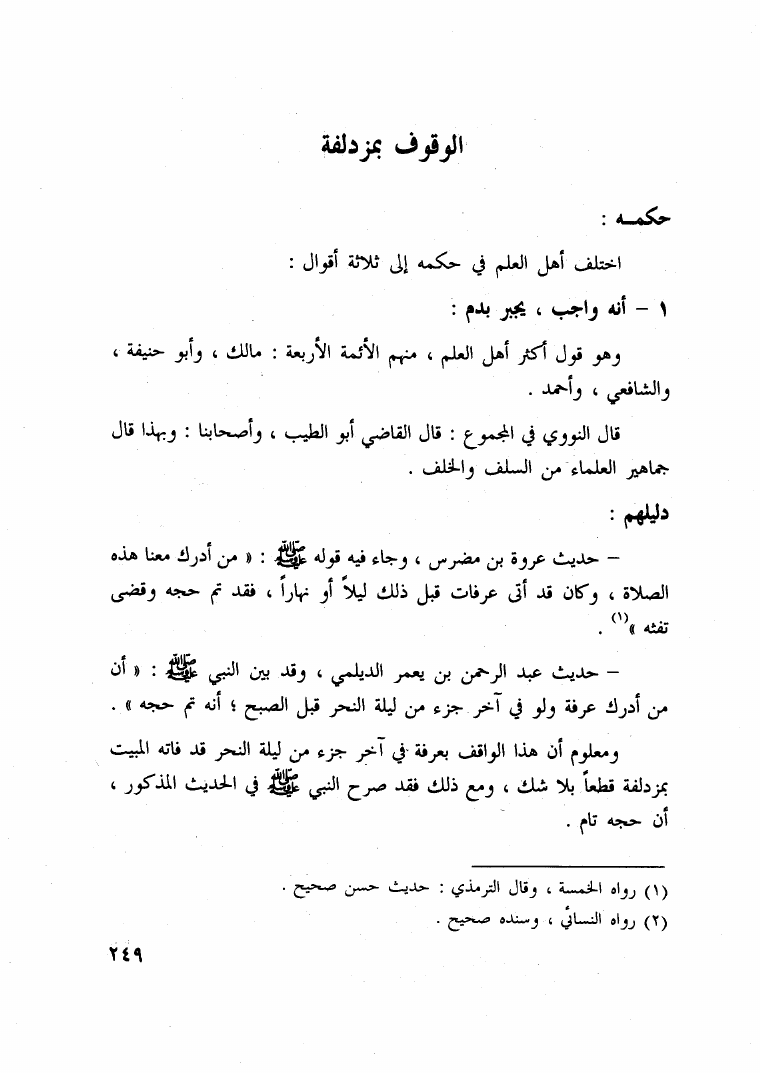 الوقوف بمزدلفة
حكمـــه :
اختلف أهل العلم في حكمه إلى ثلاثة أقوال :
١ – أنه واجب ، يجبر بدم :
وهو قول أكثر أهل العلم ، منهم الأئمة الأربعة : مالك ، وأبو حنيفة ،
والشافعي ، وأحمد .
قال النووي في المجموع : قال القاضي أبو الطيب ، وأصحابنا : وبهذا قال
جماهير العلماء من السلف والخلف .
دليلهم :
– حديث عروة بن مضرس ، وجاء فيه قوله ﷺ : « من أدرك معنا هذه
الصلاة ، وكان قد أتى عرفات قبل ذلك ليلاً أو نهاراً ، فقد تم حجه وقضى
تفثه »(١) .
– حديث عبد الرحمن بن يعمر الديلمي ، وقد بين النبي ﷺ : « أن
من أدرك عرفة ولو في آخر جزء من ليلة النحر قبل الصبح ؛ أنه تم حجه » .
ومعلوم أن هذا الواقف بعرفة في آخر جزء من ليلة النحر قد فاته المبيت
بمزدلفة قطعاً بلا شك ، ومع ذلك فقد صرح النبي ﷺ في الحديث المذكور ،
أن حجه تام .
(١) رواه الخمسة ، وقال الترمذي : حديث حسن صحيح .
(٢) رواه النسائي ، وسنده صحيح .
٢٤٩